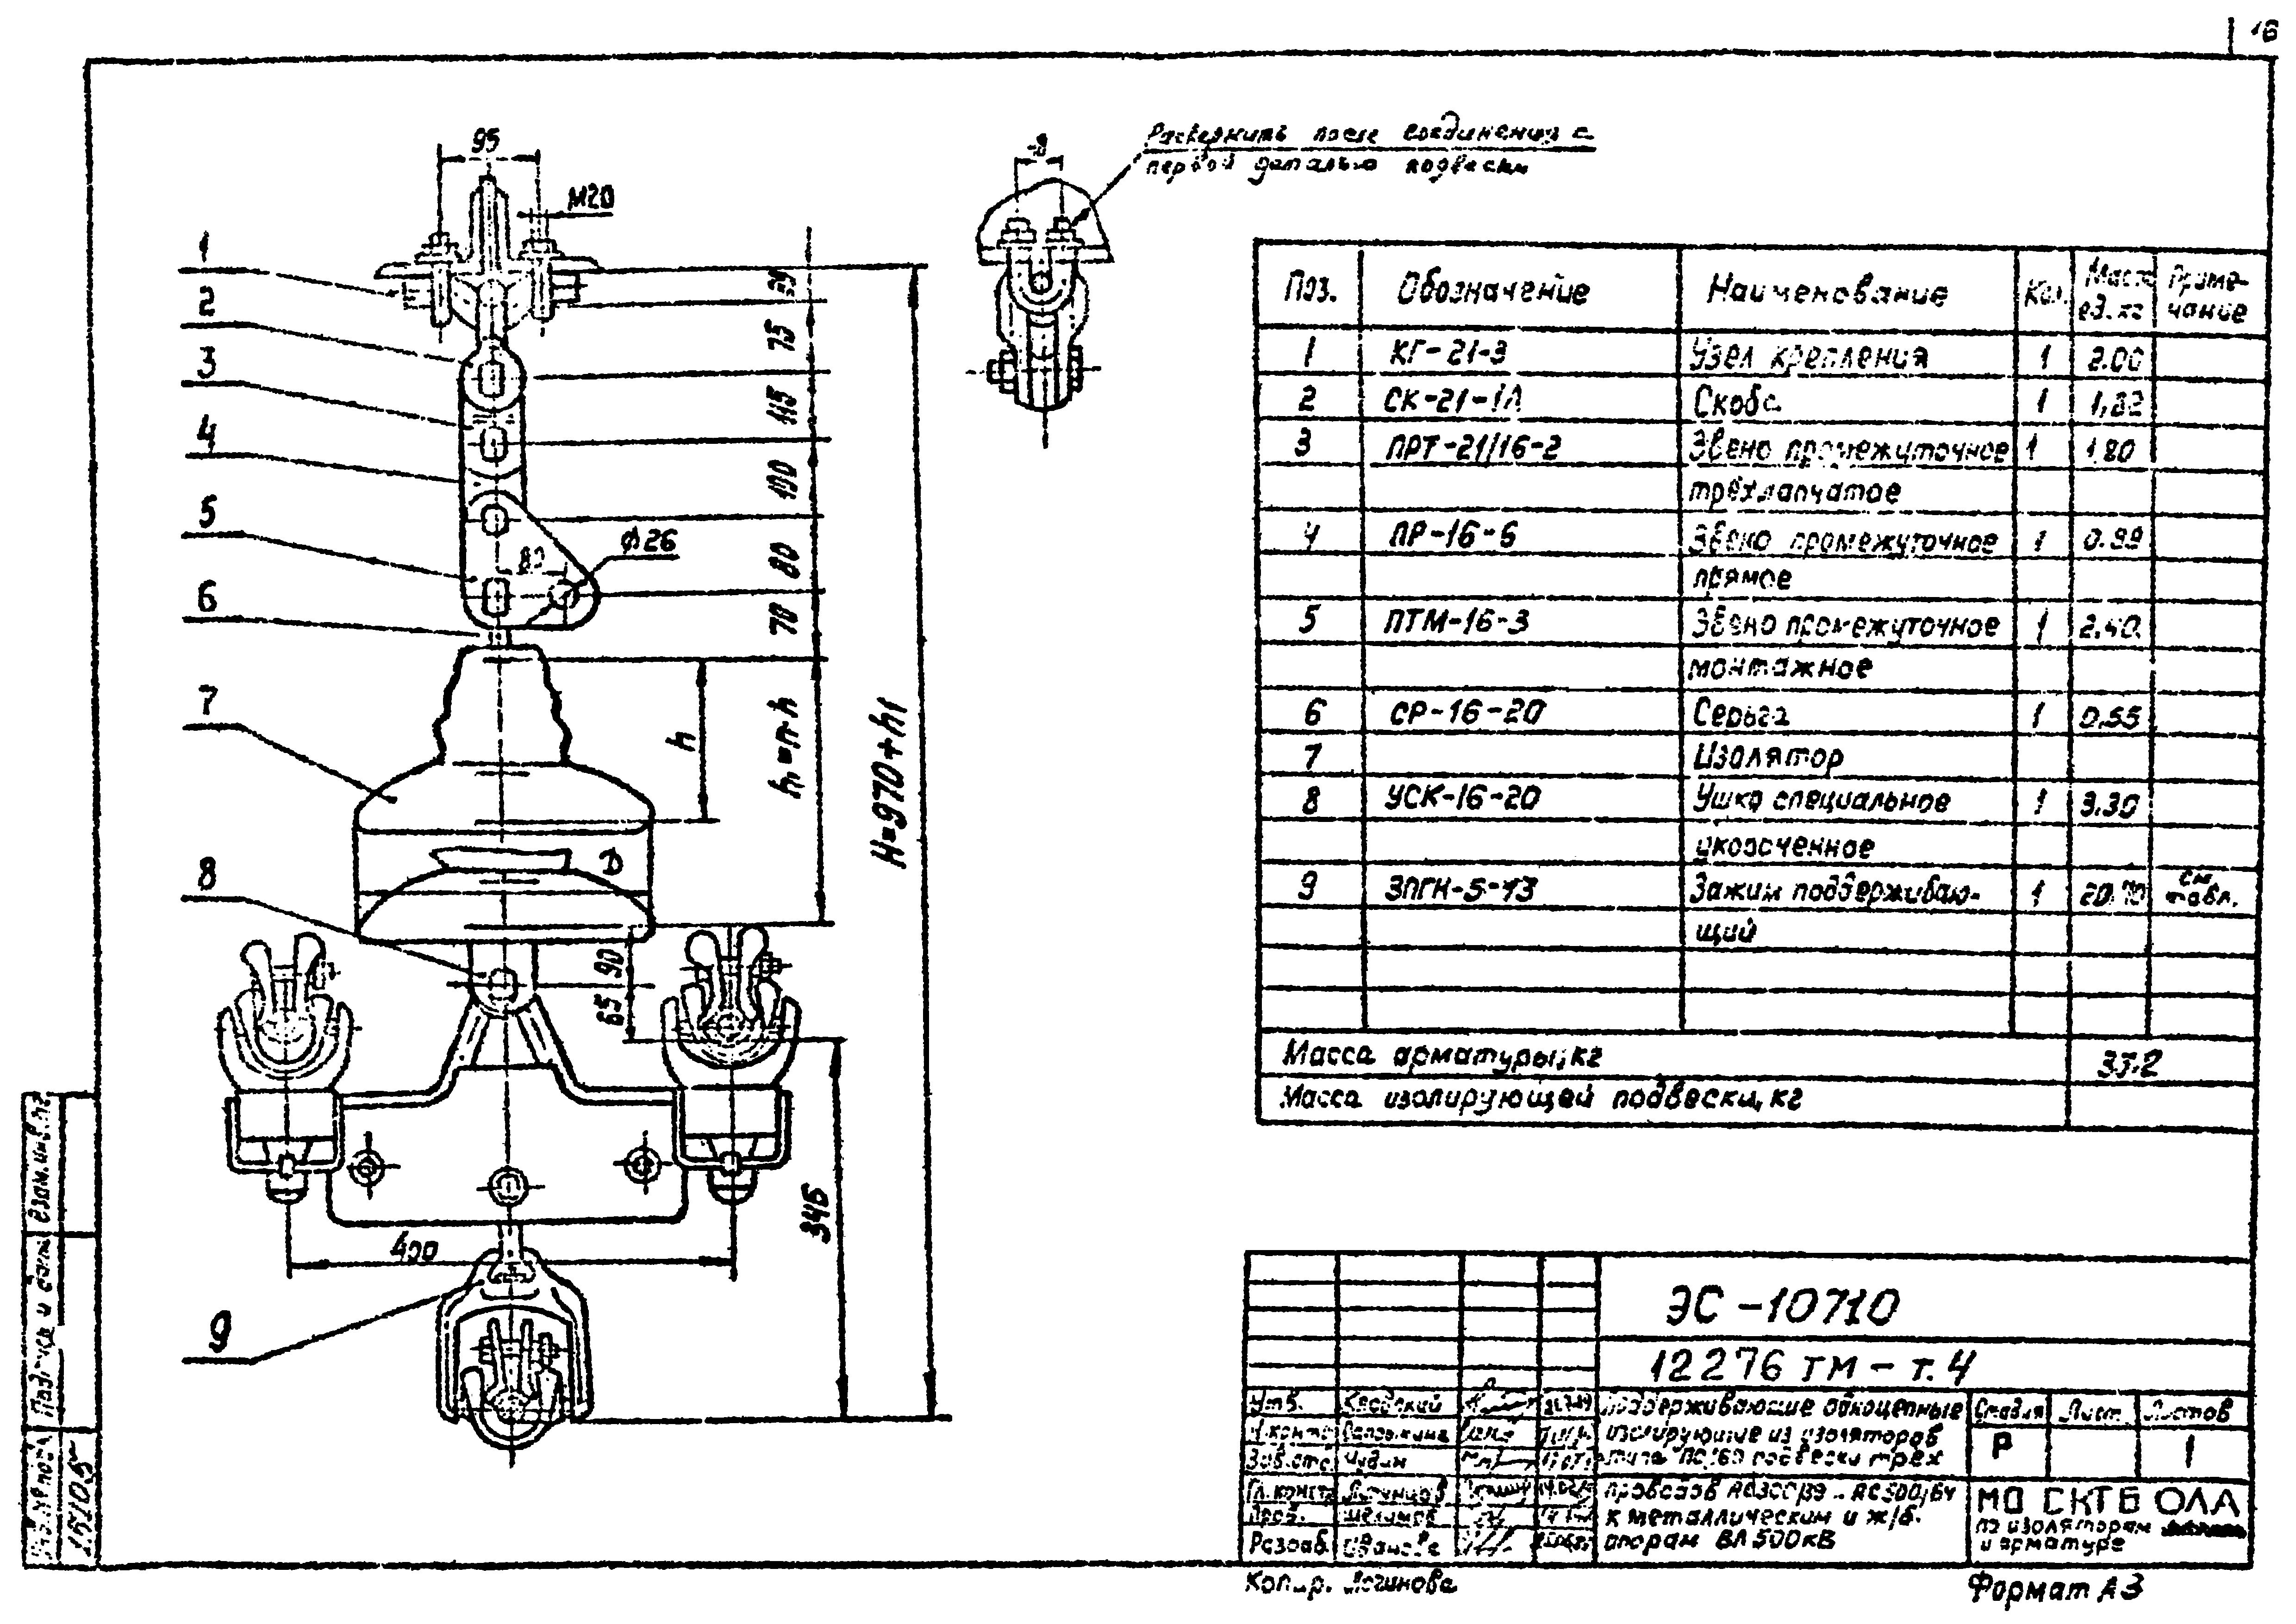 16
95
М20
Развернить после соединения с
первой деталью подвески
1
2
3
4
5
6
7
8
9
75
115
100
80
70
80
ф26
h
h₁=n·h
H=970+h1
D
90
65
345
400
Поз. Обозначение Наименование Кол. Масс ед. кг Приме-чание
1 КГ-21-3 Узел крепления 1 2.00
2 СК-21-1А Скоба 1 1,82
3 ПРТ-21/16-2 Звено промежуточное 1 1,80
трёхлапчатое
4 ПР-16-6 Звено промежуточное 1 0.99
прямое
5 ПТМ-16-3 Звено промежуточное 1 2.40
монтажное
6 СР-16-20 Серьга 1 0.55
7 Изолятор
8 УСК-16-20 Ушко специальное 1 3.30
укороченное
9 ЗПГН-5-13 Зажим поддерживаю- 1 см. табл.
щий
Масса арматуры, кг
Масса изолирующей подвески, кг
ЭС-10710
12276 тм-т.4
Утв.
Н.контр
Зав.отд. Чудин
Гл.констр
Пров.
Разраб. Иванова
Поддерживающие одноцепные
изолирующие из изоляторов
типа ПС160 подвески трех
проводов
к металлическим и ж/б.
опорам ВЛ 500кВ
Стадия Лист Листов
Р 1
МО СКТБ ОЛА
по изоляторам
и арматуре
Взам.инв.№
Подпись и дата
15105
Копир. Логинова
Формат А3